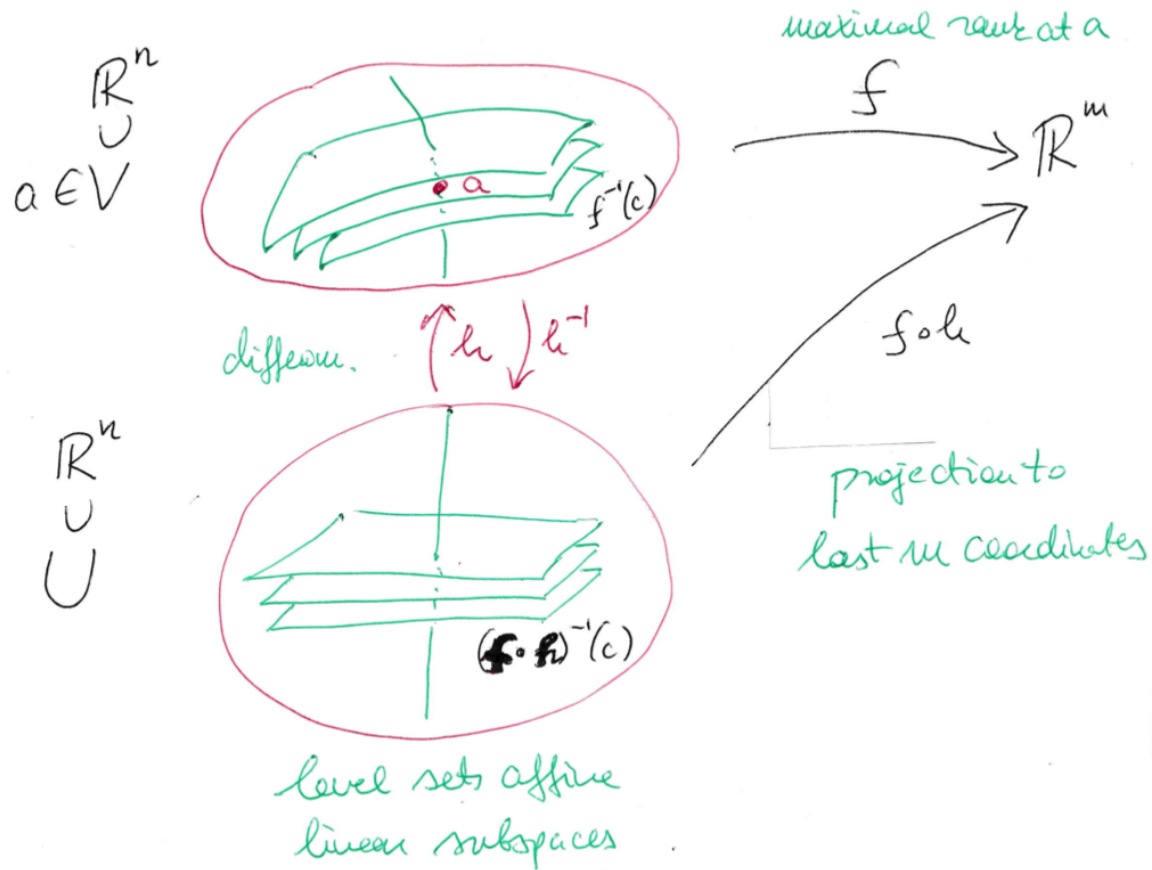 maximal rank at a
ℝⁿ
∪
a ∈ V
f
ℝᵐ
a
f⁻¹(c)
diffeom.
h
h⁻¹
f∘h
ℝⁿ
∪
U
projection to
last m coordinates
(f∘h)⁻¹(c)
level sets affine
linear subspaces